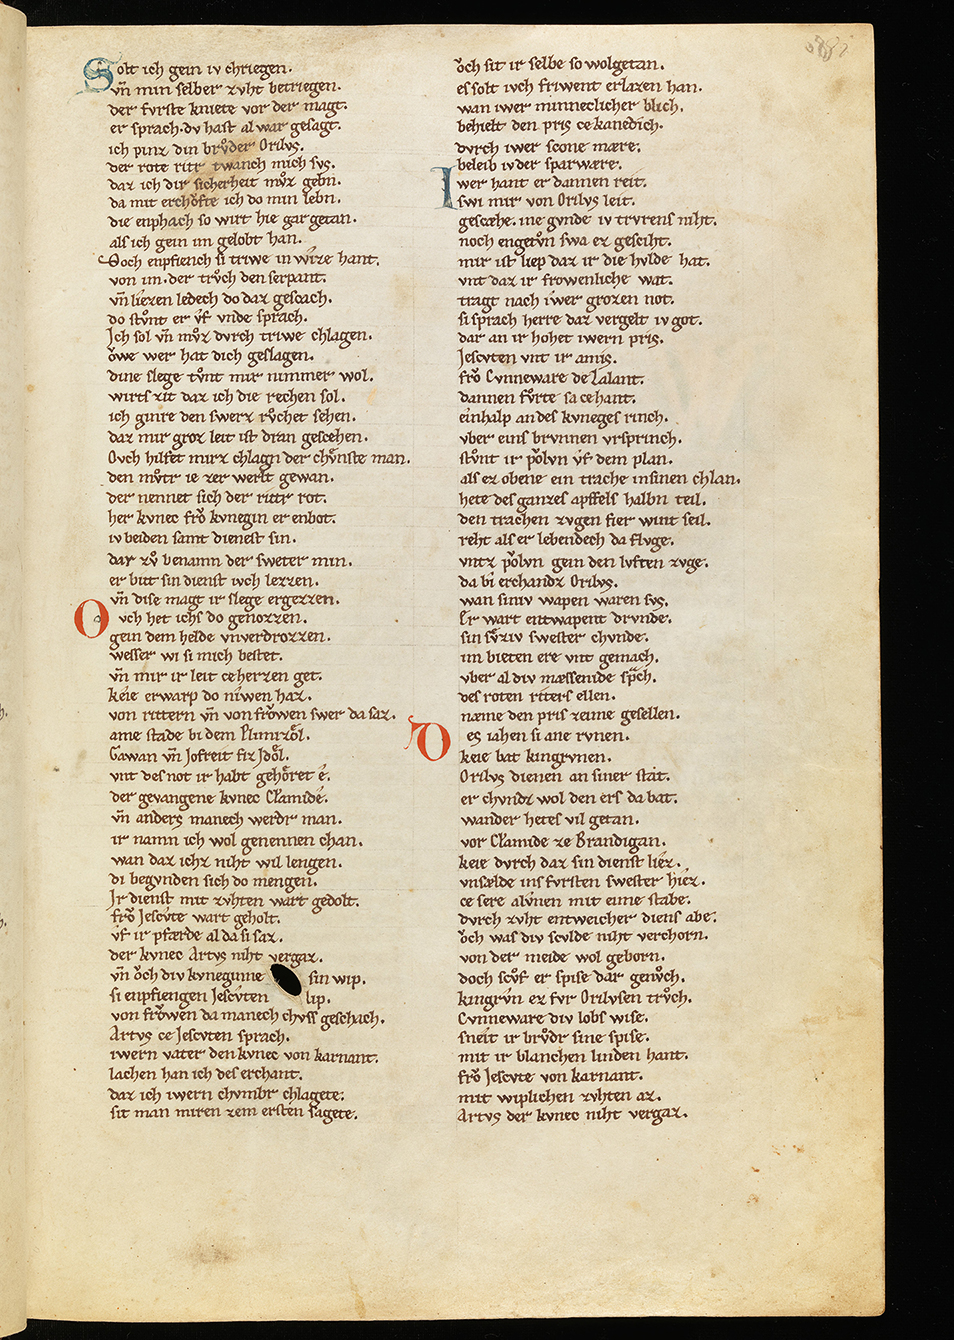 Solt ich gein iv chriegen.
vn̄ min selber zvht betriegen.
der fvrste kniete vor der magt.
er sprach. dv hast al war gesagt.
ich pinz din brv̊der Orilvs.
der rote ritr twanch mich svs.
daz ich dir sicherheit mv̊z gebn.
da mit erchǒfte ich do min lebn.
die enphach so wirt hie gar getan.
als ich gein im gelobt han.
Doch enpfiench si triwe in wize hant.
von im. der trv̊ch den serpant.
vn̄ liezen ledech do daz gescach.
do stv̊nt er v̂f vnde sprach.
Ich sol vn̄ mv̊z dvrch triwe chlagen.
ôwe wer hat dich geslagen.
dine slege tv̊nt mir nimmer wol.
wirts zit daz ich die rechen sol.
ich ginre den swerz rv̊chet sehen.
daz mir groz leit ist dran gescehen.
Ovch hilfet mirz chlagn der chv̊nste man.
den mv̊tr ie zer werlt gewan.
der nennet sich der rittr rot.
her kvnec frǒ kvnegin er enbot.
iv beiden samt dienest sin.
dar zv̊ benamn der swester min.
er bitt sin dienst ivch lezzen.
vn̄ dise magt ir slege ergezzen.
Ovch het ichs do genozzen.
gein dem helde vnverdrozzen.
wesser wi si mich bestet.
vn̄ mir ir leit ce herzen get.
keie erwarp do niwen haz.
von rittern vn̄ von frǒwen swer da saz.
ame stade bi dem Plimizǒl.
Gawan vn̄ Jofreit fiz Jdǒl.
vnt des not ir habt gehǒret ê.
der gevangene kvnec Clamidê.
vn̄ anders manech werdr man.
ir namn ich wol genennen chan.
wan daz ichz niht wil lengen.
di begvnden sich do mengen.
Jr dienst mit zvhten wart gedolt.
frǒ Jescvte wart geholt.
v̂f ir pfærde al da si saz.
der kvnec Artvs niht vergaz.
vn̄ ǒch div kvneginne sin wip.
si enpfiengen Jescvten lip.
von frǒwen da manech chvss geschach.
Artvs ce Jescvten sprach.
iwern vater den kvnec von karnant.
lachen han ich des erchant.
daz ich iwern chvmbr chlagete.
sit man miren zem ersten sagete.
ǒch sit ir selbe so wolgetan.
es solt ivch friwent erlazen han.
wan iwer minneclicher blich.
behielt den pris ce kanedich.
dvrch iwer scone mære.
beleib iv der sparwære.
Iwer hant er dannen reit.
swi mir von Orilvs leit.
gescæhe. ine gvnde iv trvrens niht.
noch engetv̊n swa ez gesciht.
mir ist liep daz ir die hvlde hat.
vnt daz ir frowenliche wat.
tragt nach iwer grozen not.
si sprach herre daz vergelt iv got.
dar an ir hohet iwern pris.
Jescvten vnt ir amis.
frǒ Cvnneware de Lalant.
dannen fv̊rte sa cehant.
einhalp an des kvneges rinch.
vber eins brvnnen vrsprinch.
stv̊nt ir p̊olvn v̂f dem plan.
als ez obene ein trache in sinen chlan.
hete des ganzes apffels halbn teil.
den trachen zvgen fier wint seil.
reht als er lebendech da flvge.
vntz p̊olvn gein den lvften zvge.
da bi erchandz Orilvs.
wan siniv wapen waren svs.
Er wart entwapent drvnde.
sin sv̊ziv swester chvnde.
im bieten ere vnt gemach.
vber al div mæssenide sp̄ch.
des roten riters ellen.
næme den pris zeime gesellen.
Des iahen si ane rvnen.
keie bat kingrvnen.
Orilvs dienen an siner stat.
er chvndz wol den ers da bat.
wander hetes vil getan.
vor Clamide ze Brandigan.
keie dvrch daz sin dienst liez.
vnsælde ins fvrsten swester hiez.
ce sere alv̊nen mit eime stabe.
dvrch zvht entweicher diens abe.
ǒch was div scvlde niht verchorn.
von der meide wol geborn.
doch scv̊f er spise dar genv̊ch.
kingrv̊n ez fvr Orilvsen trv̊ch.
Cvnneware div lobs wise.
sneit ir brv̊dr sine spise.
mit ir blanchen linden hant.
frǒ Jescvte von karnant.
mit wiplichen zvhten az.
Artvs der kvnec niht vergaz.